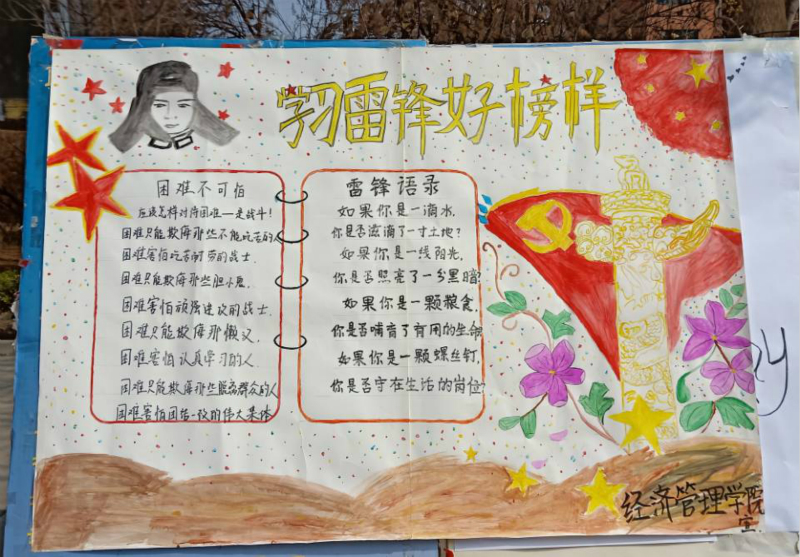 学习雷锋好榜样
困难不可怕
应该怎样对待困难—是战斗!
困难只能欺侮那些不能吃苦的人
困难害怕吃苦耐劳的战士.
困难只能欺侮那些胆小鬼.
困难害怕顽强建设的战士.
困难只能欺侮那懒汉.
困难害怕认真学习的人
困难只能欺侮那些脱离群众的人
困难害怕团结一致的伟大集体
雷锋语录
如果你是一滴水,
你是否滋润了一寸土地?
如果你是一线阳光,
你是否照亮了一分黑暗?
如果你是一颗粮食,
你是否哺育了有用的生命
如果你是一颗螺丝钉,
你是否守在生活的岗位
经济管理学院
宣